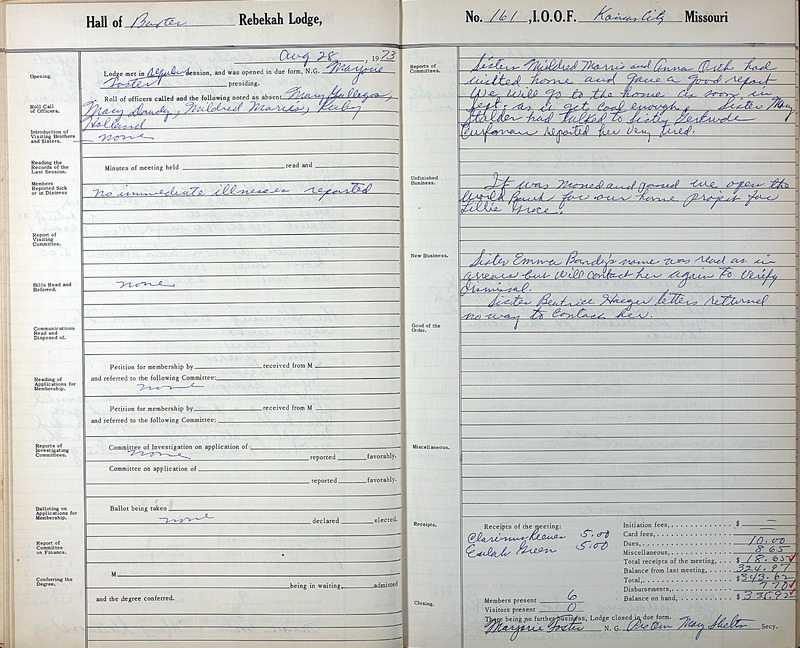 Hall of Baxter Rebekah Lodge,
Aug 28, 1973
Opening.
Lodge met in regular session, and was opened in due form, N.G. Marjorie
Foster presiding.
Roll Call of Officers.
Roll of officers called and the following noted as absent Mary Gallegos,
Mary Dandy, Mildred Morris, Ruby
Holland
Introduction of Visiting Brothers and Sisters.
none
Reading the Records of the Last Session.
Minutes of meeting held read and
Members Reported Sick or in Distress
no immediate illnesses reported
Report of Visiting Committee.
Bills Read and Referred.
none
Communications Read and Disposed of.
Petition for membership by received from M
Reading of Applications for Membership.
and referred to the following Committee:
none
Petition for membership by received from M
and referred to the following Committee:
Reports of Investigating Committees.
Committee of Investigation on application of
none reported favorably.
Committee on application of
reported favorably.
Balloting on Applications for Membership.
Ballot being taken
none declared elected.
Report of Committee on Finance.
Conferring the Degree.
M
being in waiting, admitted
and the degree conferred.
No. 161, I.O.O.F. Kansas City Missouri
Reports of Committees.
Sisters Mildred Morris and Anna Orth had
visited home and gave a good report
We will go to the home on soon in
Sept. as it get cool enough. Sister Mary
Stalder had talked to Sister Gertrude
reported her very tired.
Unfinished Business.
It was moved and passed we open the
World Bank for our home project for
Lillie Groce.
New Business.
Sister Emma Bandy's name was read as in
arrears but will contact her again to verify
dismissal.
Sister Beatrice Haeger letters returned
no way to contact her.
Good of the Order.
Miscellaneous.
Receipts.
Receipts of the meeting:
Reeves 5.00
Eulah Green 5.00
Initiation fees, $ —
Card fees, —
Dues, 10.00
Miscellaneous, 8 65
Total receipts of the meeting, $ 18.65
Balance from last meeting, 324.97
Total, $343.62
Disbursements, 7 70
Balance on hand, $ 335.92
Closing.
Members present 6
Visitors present 0
There being no further business, Lodge closed in due form.
Marjorie Foster N. G. Pro Tem Mary Shelton Secy.